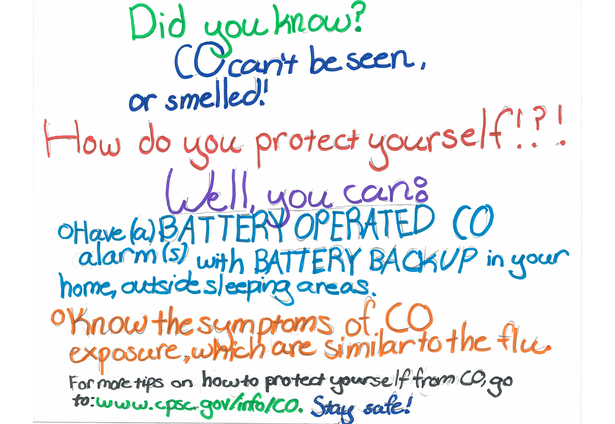 Did you know?
CO can't be seen,
or smelled!
How do you protect yourself!?!
Well, you can:
Have (a) BATTERY OPERATED CO
alarm(s) with BATTERY BACKUP in your
home, outside sleeping areas.
Know the symptoms of CO
exposure, which are similar to the flu.
For more tips on how to protect yourself from CO, go
to: www.cpsc.gov/info/CO. Stay safe!